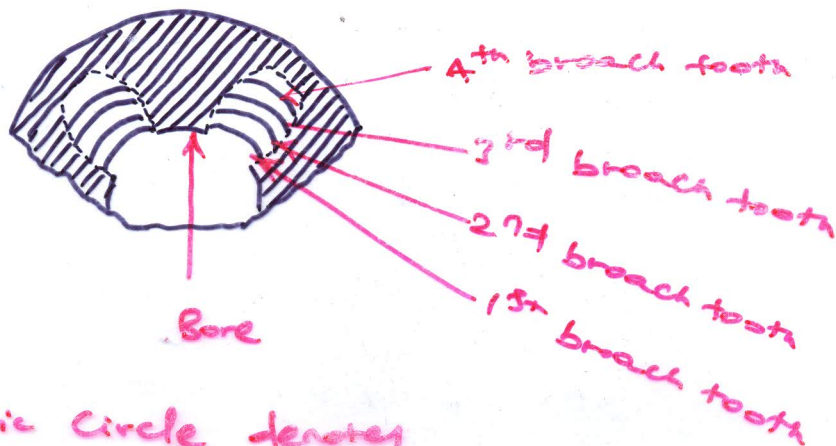 4th broach tooth
3rd broach tooth
2nd broach tooth
1st broach tooth
Bore
ic circle denotes